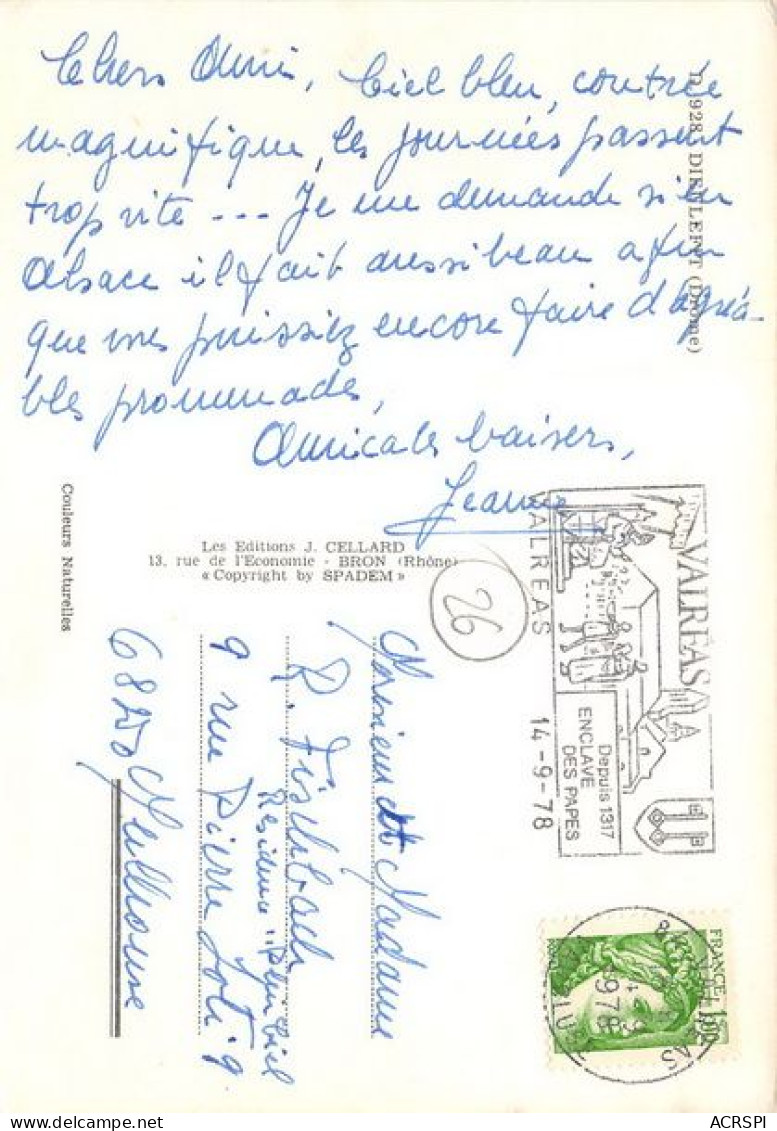 Chers Amis, Ciel bleu, contrée
magnifique, les journées passent
trop vite --- Je me demande si en
Alsace il fait aussi beau afin
que vous puissiez encore faire d'agréa-
bles promenades,
Amicales baisers,
Jeanne
DIEULEFIT (Drôme)
Couleurs Naturelles
Les Editions J. CELLARD
13, rue de l'Economie - BRON (Rhône)
« Copyright by SPADEM »
26
Monsieur et Madame
R. Fischbach
Résidence "Plein Ciel
9 rue Pierre Loti 9
68200 Mulhouse
VALREAS
14-9-78
VALREAS
Depuis 1317
ENCLAVE
DES PAPES
FRANCE
1,00
84 VALREAS
VAUCLUSE
1978
ACRSPI